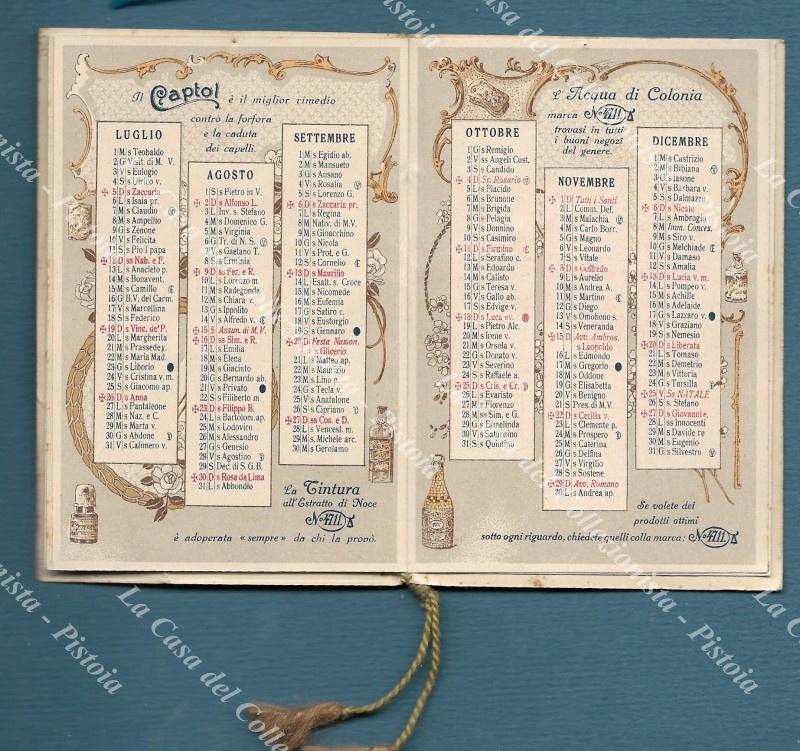 Il Captol è il miglior rimedio
contro la forfora
e la caduta
dei capelli.
LUGLIO
1 M s Teobaldo
2 G Visit. di M. V.
3 V s Eulogio
4 S s Ulrico v.
5 D s Zaccaria
6 L s Isaia pr.
7 M s Claudio
8 M s Ampellio
9 G s Zenone
10 V s Felicita
11 S s Pio I papa
12 D ss Nab. e F.
13 L s Anacleto p.
14 M s Bonavent.
15 M s Camillo
16 G B.V. del Carm.
17 V s Marcellina
18 S s Federico
19 D s Vinc. de' P.
20 L s Margherita
21 M s Prassedey.
22 M s Maria Mad.
23 G s Liborio
24 V s Cristina v. m.
25 S s Giacomo ap.
26 D s Anna
27 L s Pantaleone
28 M s Naz. e C.
29 M s Marta v.
30 G s Abdone
31 V s Calimero v.
AGOSTO
1 S s Pietro in V.
2 D s Alfonso L.
3 L Inv. s. Stefano
4 M s Domenico G.
5 M s Virginia
6 G Tr. di N. S.
7 V s Gaetano T.
8 S s Erminia
9 D s Fer. e R.
10 L s Lorenzo m.
11 M s Radegonda
12 M s Chiara v.
13 G s Ippolito
14 V s Alfredo v.
15 S Assun. di M. V.
16 D ss Sim. e R.
17 L s Emilia
18 M s Elena
19 M s Giacinto
20 G s Bernardo ab.
21 V s Privato
22 S s Filiberto m.
23 D s Filippo B.
24 L s Bartolom. ap.
25 M s Lodovico
26 M s Alessandro
27 G s Genesio
28 V s Agostino
29 S Dec. di S. G. B.
30 D s Rosa da Lima
31 L s Abbondio
SETTEMBRE
1 M s Egidio ab.
2 M s Mansueto
3 G s Ausano
4 V s Rosalia
5 S s Lorenzo G.
6 D s Zaccaria pr.
7 L s Regina
8 M Nativ. di M.V.
9 M s Gioacchino
10 G s Nicola
11 V s Prot. e G.
12 S s Cornelio
13 D s Maurilio
14 L Esalt. s. Croce
15 M s Nicomede
16 M s Eufemia
17 G s Satiro c.
18 V s Eustorgio
19 S s Gennaro
20 D Festa Nazion.
s Glicerio
21 L s Matteo ap.
22 M s Maurizio
23 M s Lino p.
24 G s Tecla v.
25 V s Anatalone
26 S s Cipriano
27 D ss Cos. e D.
28 L s Vencesl. m.
29 M s Michele arc.
30 M s Gerolamo
La Tintura
all'Estratto di Noce
No 4711.
è adoperata «sempre» da chi la provò.
L'Acqua di Colonia
marca No 4711.
trovasi in tutti
i buoni negozi
del genere.
OTTOBRE
1 G s Remigio
2 V ss Angeli Cust.
3 S s Candido
4 D Ss. Rosario
5 L s Placido
6 M s Brunone
7 M s Brigida
8 G s Pelagia
9 V s Donnino
10 S s Casimiro
11 D s Firmino
12 L s Serafino c.
13 M s Edoardo
14 M s Calisto
15 G s Teresa v.
16 V s Gallo ab.
17 S s Edvige v.
18 D s Luca ev.
19 L s Pietro Alc.
20 M s Irene v.
21 M s Orsola v.
22 G s Donato v.
23 V s Severino
24 S s Raffaele a.
25 D s Cris. e Cr.
26 L s Evaristo
27 M s Fiorenzo
28 M ss Sim. e G.
29 G s Ermelinda
30 V s Saturnino
31 S s Quintino
NOVEMBRE
1 D Tutti i Santi
2 L Comm. Def.
3 M s Malachia
4 M s Carlo Borr.
5 G s Magno
6 V s Leonardo
7 S s Vitale
8 D s Goffredo
9 L s Aurelio
10 M s Andrea A.
11 M s Martino
12 G s Diego
13 V s Omobono s.
14 S s Veneranda
15 D Avv. Ambros.
s Leopoldo
16 L s Edmondo
17 M s Gregorio
18 M s Oddone
19 G s Elisabetta
20 V s Benigno
21 S Pres. di M.V.
22 D s Cecilia v.
23 L s Clemente p.
24 M s Prospero
25 M s Caterina
26 G s Delfina
27 V s Virgilio
28 S s Sostene
29 D Avv. Romano
30 L s Andrea ap.
DICEMBRE
1 M s Castrizio
2 M s Bibiana
3 G s Iasone
4 V s Barbara v.
5 S s Dalmazzo
6 D s Nicolò
7 L s Ambrogio
8 M Imm. Conces.
9 M s Siro v.
10 G s Melchiade
11 V s Damaso
12 S s Amalia
13 D s Lucia v. m.
14 L s Pompeo v.
15 M s Achille
16 M s Adelaide
17 G s Lazzaro v.
18 V s Graziano
19 S s Nemesio
20 D s Liberata
21 L s Tomaso
22 M s Demetrio
23 M s Vittoria
24 G s Tarsilla
25 V Ss NATALE
26 S s. Stefano
27 D s Giovanni e.
28 L ss Innocenti
29 M s Davide re
30 M s Eugenio
31 G s Silvestro
Se volete dei
prodotti ottimi
sotto ogni riguardo, chiedete quelli colla marca: No 4711.
La Casa del Collezionista - Pistoia